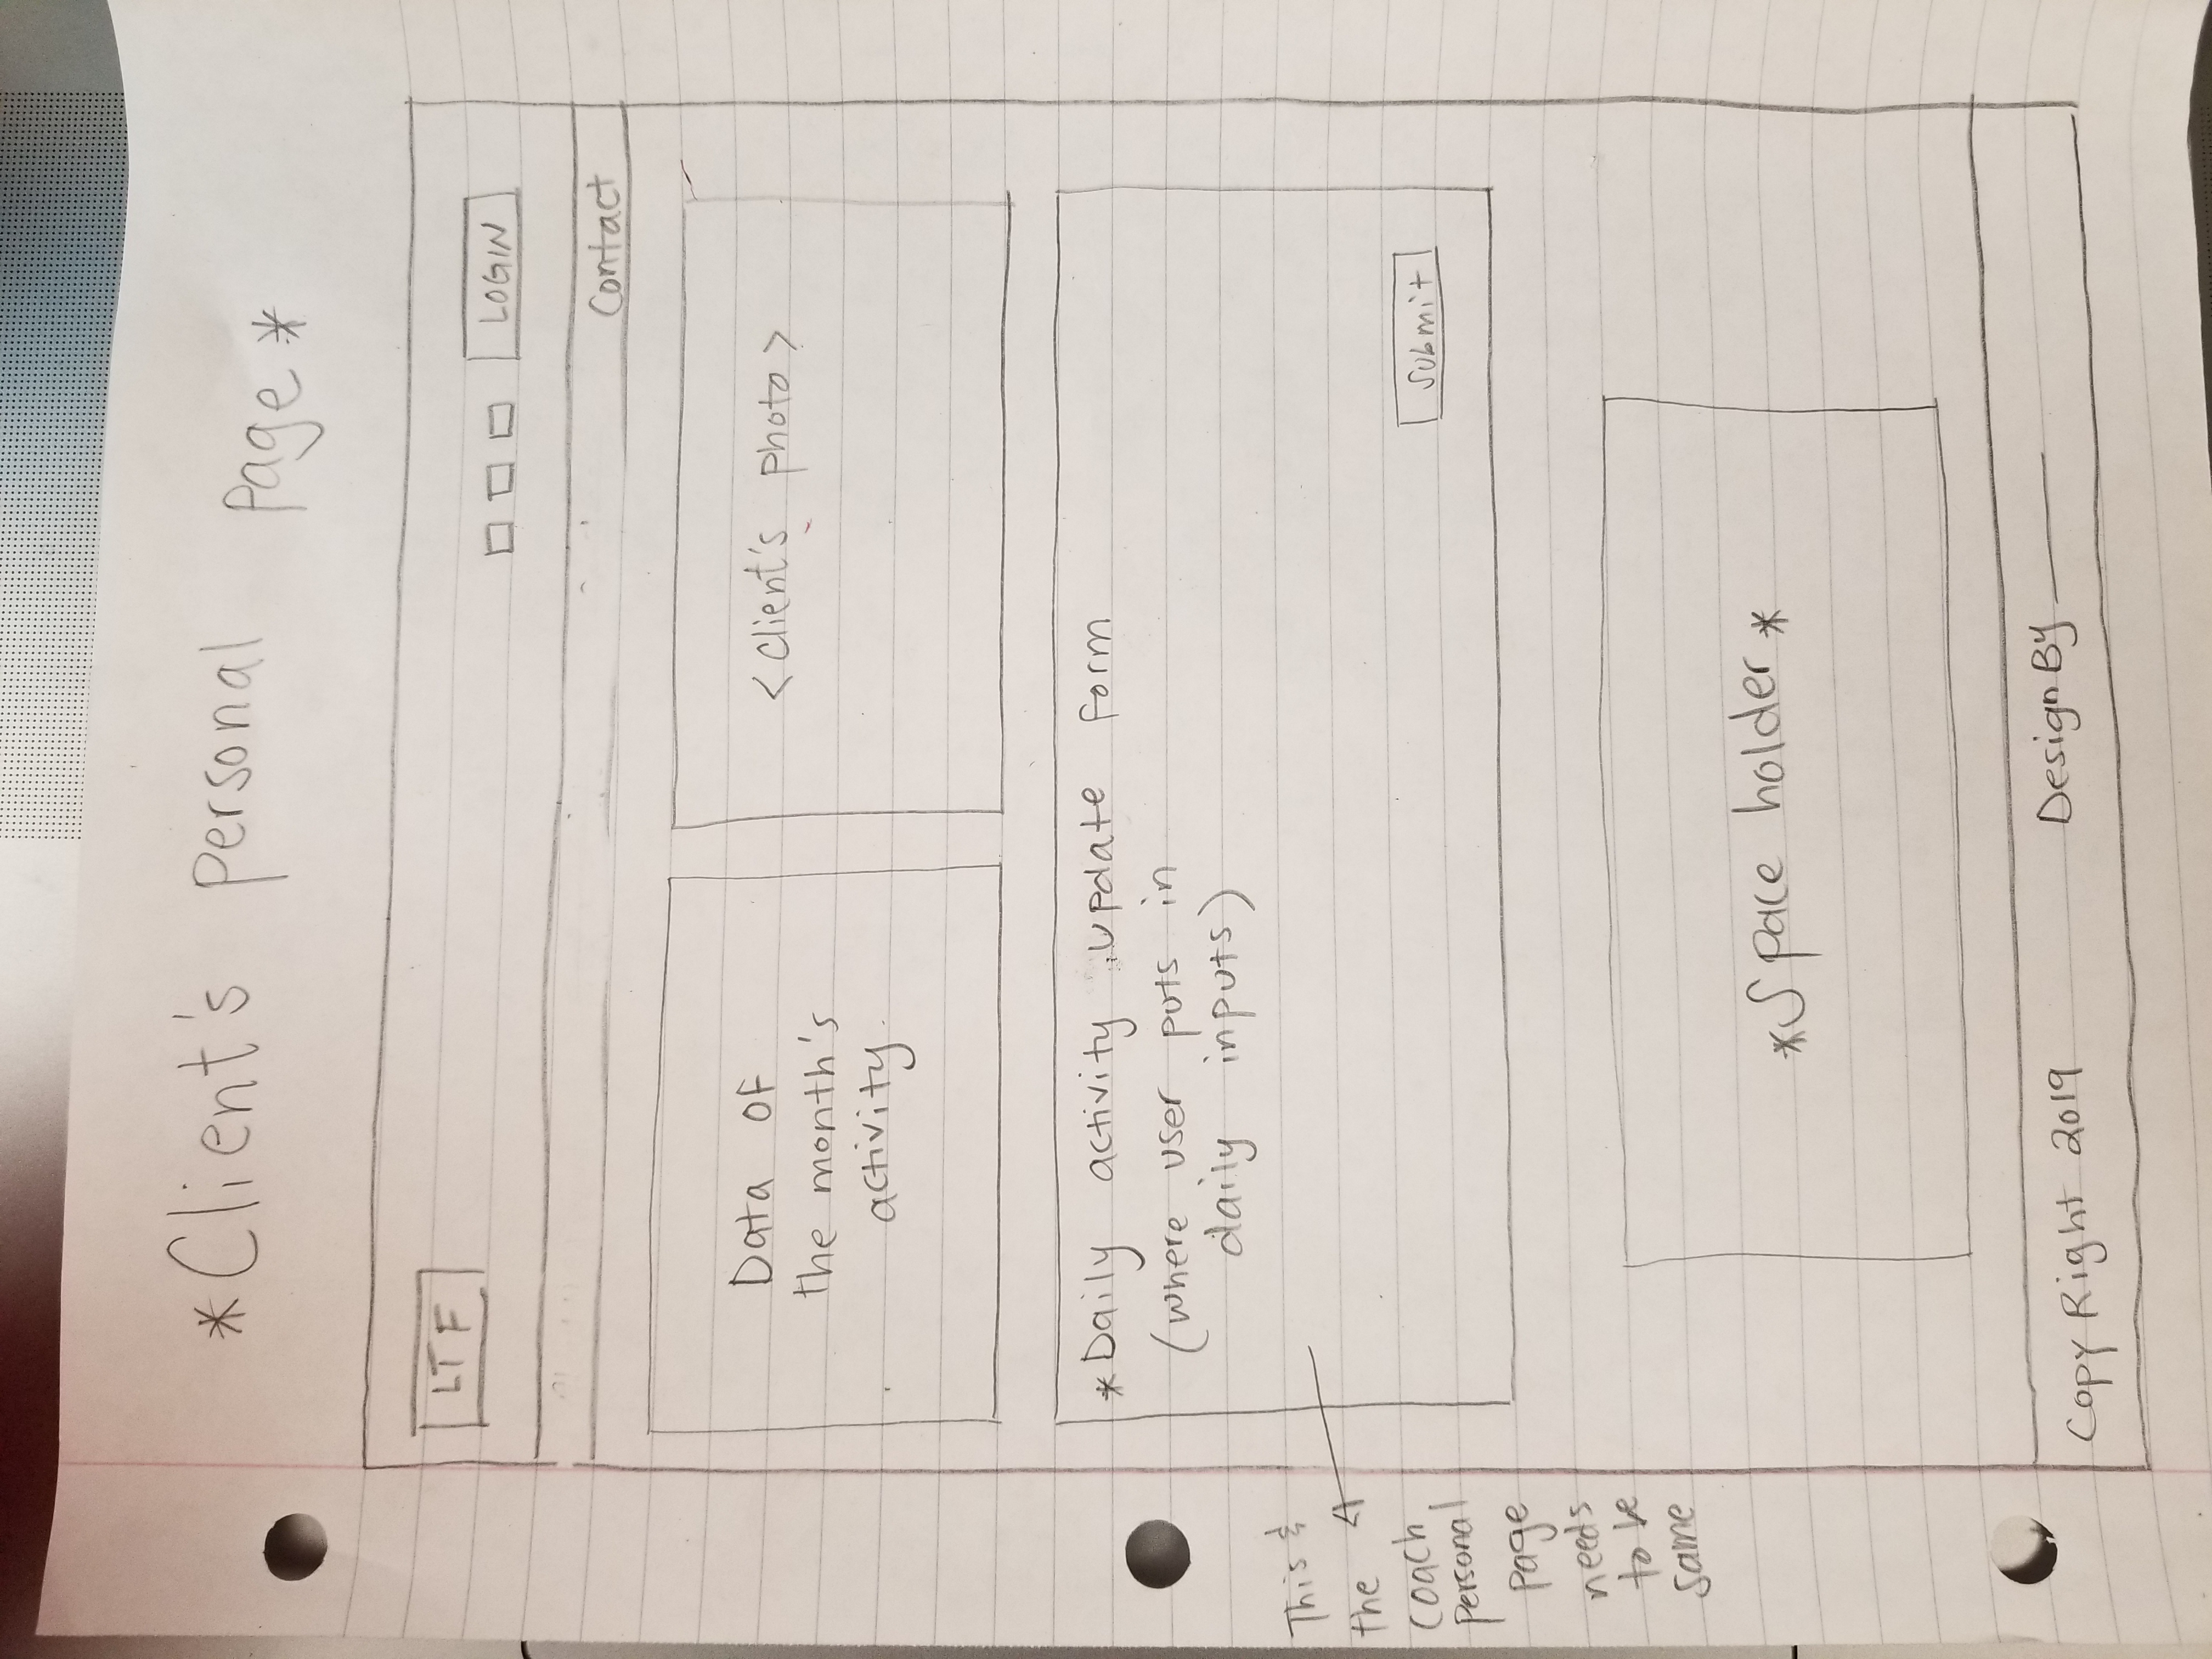 *Client's personal Page*
LTF
LOGIN
Contact
Data OF
the month's
activity.
<client's photo>
*Daily activity update form
(where user puts in
daily inputs)
This &
the
coach
personal
page
needs
to be
same
submit
*Space holder*
Copy Right 2019
Design By